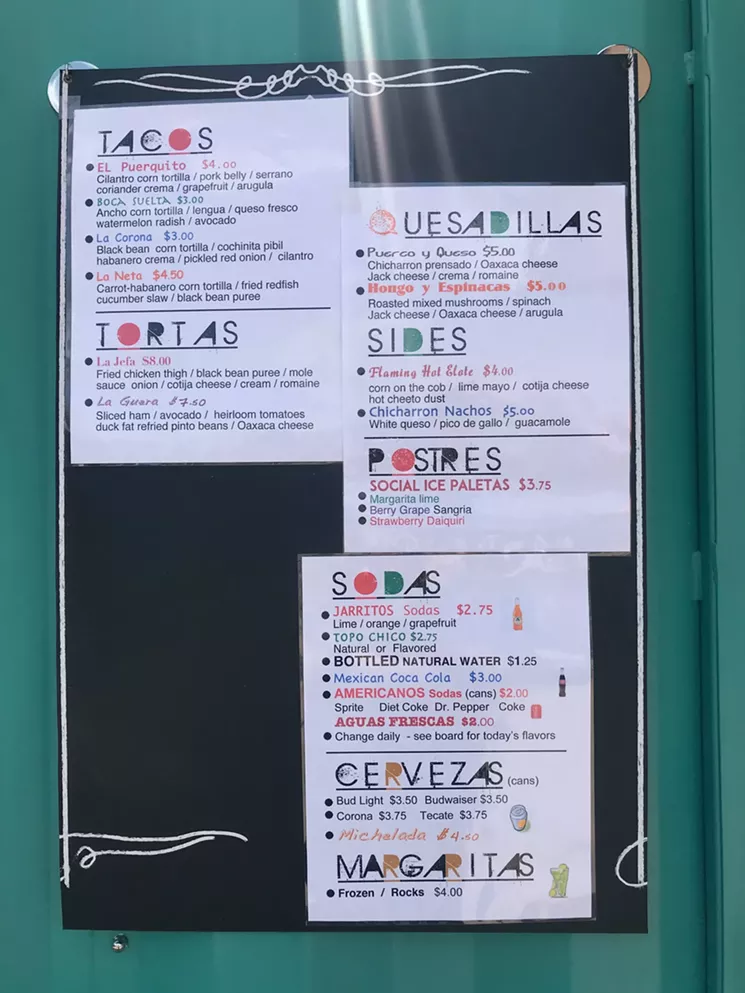 TACOS
EL Puerquito $4.00
Cilantro corn tortilla / pork belly / serrano
coriander crema / grapefruit / arugula
BOCA SUELTA $3.00
Ancho corn tortilla / lengua / queso fresco
watermelon radish / avocado
La Corona $3.00
Black bean corn tortilla / cochinita pibil
habanero crema / pickled red onion / cilantro
La Neta $4.50
Carrot-habanero corn tortilla / fried redfish
cucumber slaw / black bean puree
TORTAS
La Jefa $8.00
Fried chicken thigh / black bean puree / mole
sauce onion / cotija cheese / cream / romaine
La Guera $7.50
Sliced ham / avocado / heirloom tomatoes
duck fat refried pinto beans / Oaxaca cheese
QUESADILLAS
Puerco y Queso $5.00
Chicharron prensado / Oaxaca cheese
Jack cheese / crema / romaine
Hongo y Espinacas $5.00
Roasted mixed mushrooms / spinach
Jack cheese / Oaxaca cheese / arugula
SIDES
Flaming Hot Elote $4.00
corn on the cob / lime mayo / cotija cheese
hot cheeto dust
Chicharron Nachos $5.00
White queso / pico de gallo / guacamole
POSTRES
SOCIAL ICE PALETAS $3.75
Margarita lime
Berry Grape Sangria
Strawberry Daiquiri
SODAS
JARRITOS Sodas $2.75
Lime / orange / grapefruit
TOPO CHICO $2.75
Natural or Flavored
BOTTLED NATURAL WATER $1.25
Mexican Coca Cola $3.00
AMERICANOS Sodas (cans) $2.00
Sprite Diet Coke Dr. Pepper Coke
AGUAS FRESCAS $2.00
Change daily - see board for today's flavors
CERVEZAS (cans)
Bud Light $3.50 Budwaiser $3.50
Corona $3.75 Tecate $3.75
Michelada $4.50
MARGARITAS
Frozen / Rocks $4.00